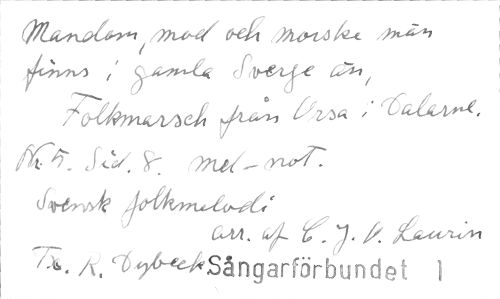 Mandom, mod och morske män
finns i gamla Sverge än,
Folkmarsch från Orsa i Dalarne.
Nr. 5. Sid. 8. mel-not.
Svensk folkmelodi
arr. af C. J. O. Laurin
Tx. R. Dybeck Sångarförbundet 1